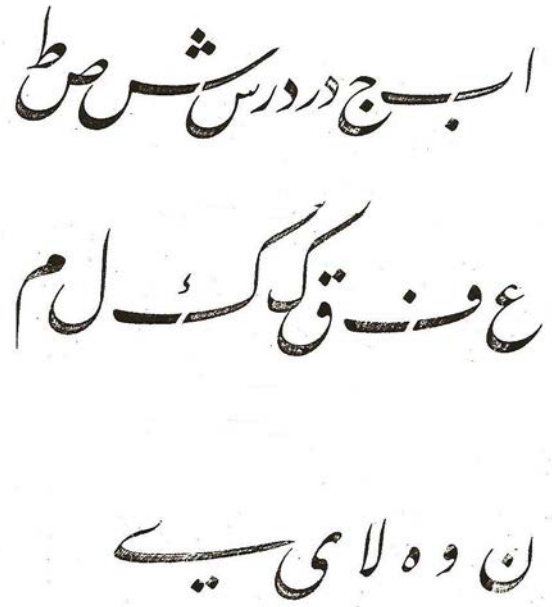 ا ب ج د ر د ر س ش ص ط
ع ف ق ک ك ل م
ن و ه لا ی ي